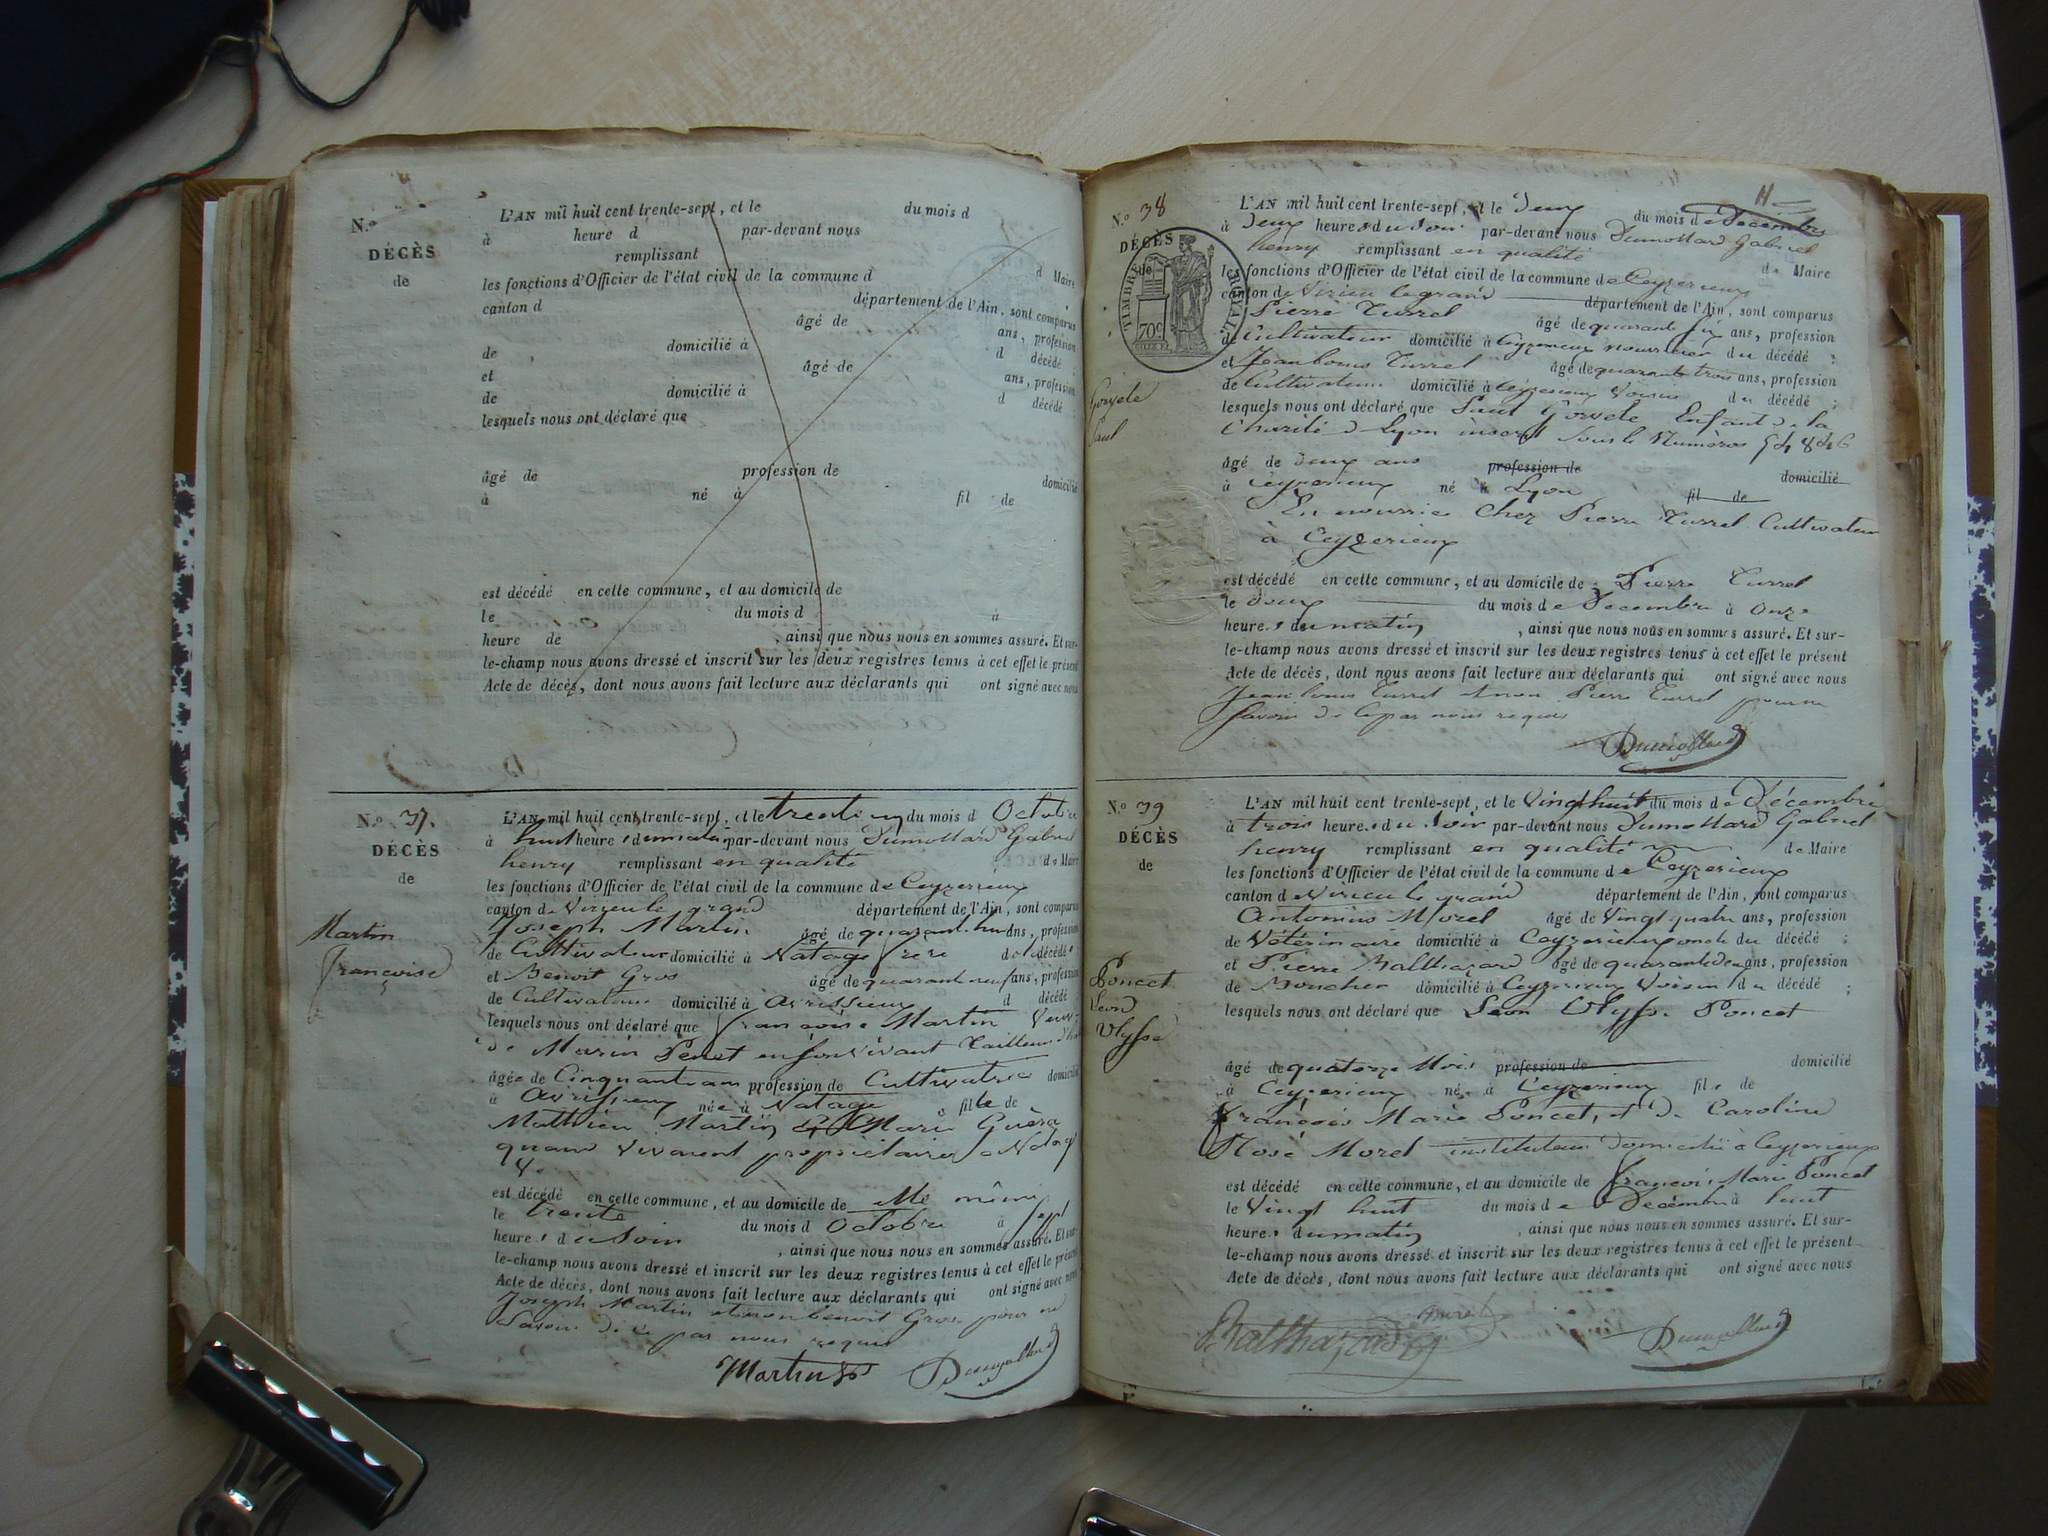 N.o
DÉCÈS
de
L'AN mil huit cent trente-sept, et le du mois d
à heure d par-devant nous
remplissant d Maire
les fonctions d'Officier de l'état civil de la commune d
canton d département de l'Ain, sont comparus
âgé de ans, profession
de domicilié à d décédé ;
et âgé de ans, profession
de domicilié à d décédé
lesquels nous ont déclaré que
âgé de profession de domicilié
à né à fil de
est décédé en cette commune, et au domicile de
le du mois d à
heure de , ainsi que nous nous en sommes assuré. Et sur-
le-champ nous avons dressé et inscrit sur les deux registres tenus à cet effet le présent
Acte de décès, dont nous avons fait lecture aux déclarants qui ont signé avec nous
N.o 37.
DÉCÈS
de
Martin
françoise
L'AN mil huit cent trente-sept, et le trente un du mois d Octobre
à huit heures du matin par-devant nous Dumollard Gabriel
henry remplissant en qualité de Maire
les fonctions d'Officier de l'état civil de la commune de Ceyzerieux
canton de Virieu le grand département de l'Ain, sont comparus
Joseph Martin âgé de quarant huit ans, profession
de Cultivateur domicilié à Natage frère de la décédé
et Benoit Gros âgé de quarant neuf ans, profession
de Cultivateur domicilié à Avrissieux d décédé
lesquels nous ont déclaré que françoise Martin Veuve
de Marin Penet en son vivant tailleur
âgée de Cinquante ans profession de Cultivatrice domicilié
à Avrissieux née à Natage fille de
Mathieu Martin et Marie Guéra
quand vivoient propriétaires à Natage
est décédé en cette commune, et au domicile de Elle même
le trente du mois d Octobre à sept
heures du Soir , ainsi que nous nous en sommes assuré. Et sur-
le-champ nous avons dressé et inscrit sur les deux registres tenus à cet effet le présent
Acte de décès, dont nous avons fait lecture aux déclarants qui ont signé avec nous
Joseph Martin et non benoit Gros pour ne
Savoir de ce par nous requis
Martin Dumollard
N.o 38
DÉCÈS
de
TIMBRE ROYAL
70c
Gorvele
Paul
L'AN mil huit cent trente-sept, et le Deux du mois de Décembre
à Deux heures du Soir par-devant nous Dumollard Gabriel
henry remplissant en qualité de Maire
les fonctions d'Officier de l'état civil de la commune de Ceyzerieux
canton de Virieu le grand département de l'Ain, sont comparus
Pierre Turrel âgé de quarante six ans, profession
de Cultivateur domicilié à Ceyzerieux nourricier du décédé ;
et Jean Louis Turrel âgé de quarante trois ans, profession
de Cultivateur domicilié à Ceyzerieux Voisin du décédé ;
lesquels nous ont déclaré que Paul Gorvele Enfant de la
Charité de Lyon inscrit sous le Numéros 54846
âgé de deux ans profession de domicilié
à Ceyzerieux né à Lyon fil de
En nourrice Chez Pierre Turrel Cultivateur
à Ceyzerieux
est décédé en cette commune, et au domicile de Pierre Turrel
le Deux du mois de Decembre à Onze
heures du matin , ainsi que nous nous en sommes assuré. Et sur-
le-champ nous avons dressé et inscrit sur les deux registres tenus à cet effet le présent
Acte de décès, dont nous avons fait lecture aux déclarants qui ont signé avec nous
Jean Louis Turrel et non Pierre Turrel pour ne
Savoir de ce par nous requis
Dumollard
N.o 39
DÉCÈS
de
Poncet
Léon
Ulysse
L'AN mil huit cent trente-sept, et le Vingt huit du mois de Décembre
à trois heures du Soir par-devant nous Dumollard Gabriel
henry remplissant en qualité de Maire
les fonctions d'Officier de l'état civil de la commune de Ceyzerieux
canton de Virieu le grand département de l'Ain, sont comparus
Antonius Morel âgé de Vingt quatre ans, profession
de Vétérinaire domicilié à Ceyzerieux oncle du décédé ;
et Pierre Balthazard âgé de quarante deux ans, profession
de Boucher domicilié à Ceyzerieux Voisin du décédé ;
lesquels nous ont déclaré que Léon Ulysse Poncet
âgé de quatorze Mois profession de domicilié
à Ceyzerieux né à Ceyzerieux fils de
François Marie Poncet, et de Caroline
Rose Morel instituteur domicilié à Ceyzerieux
est décédé en cette commune, et au domicile de François Marie Poncet
le Vingt huit du mois de Décembre à huit
heures du matin , ainsi que nous nous en sommes assuré. Et sur-
le-champ nous avons dressé et inscrit sur les deux registres tenus à cet effet le présent
Acte de décès, dont nous avons fait lecture aux déclarants qui ont signé avec nous
Morel
Balthazard Dumollard